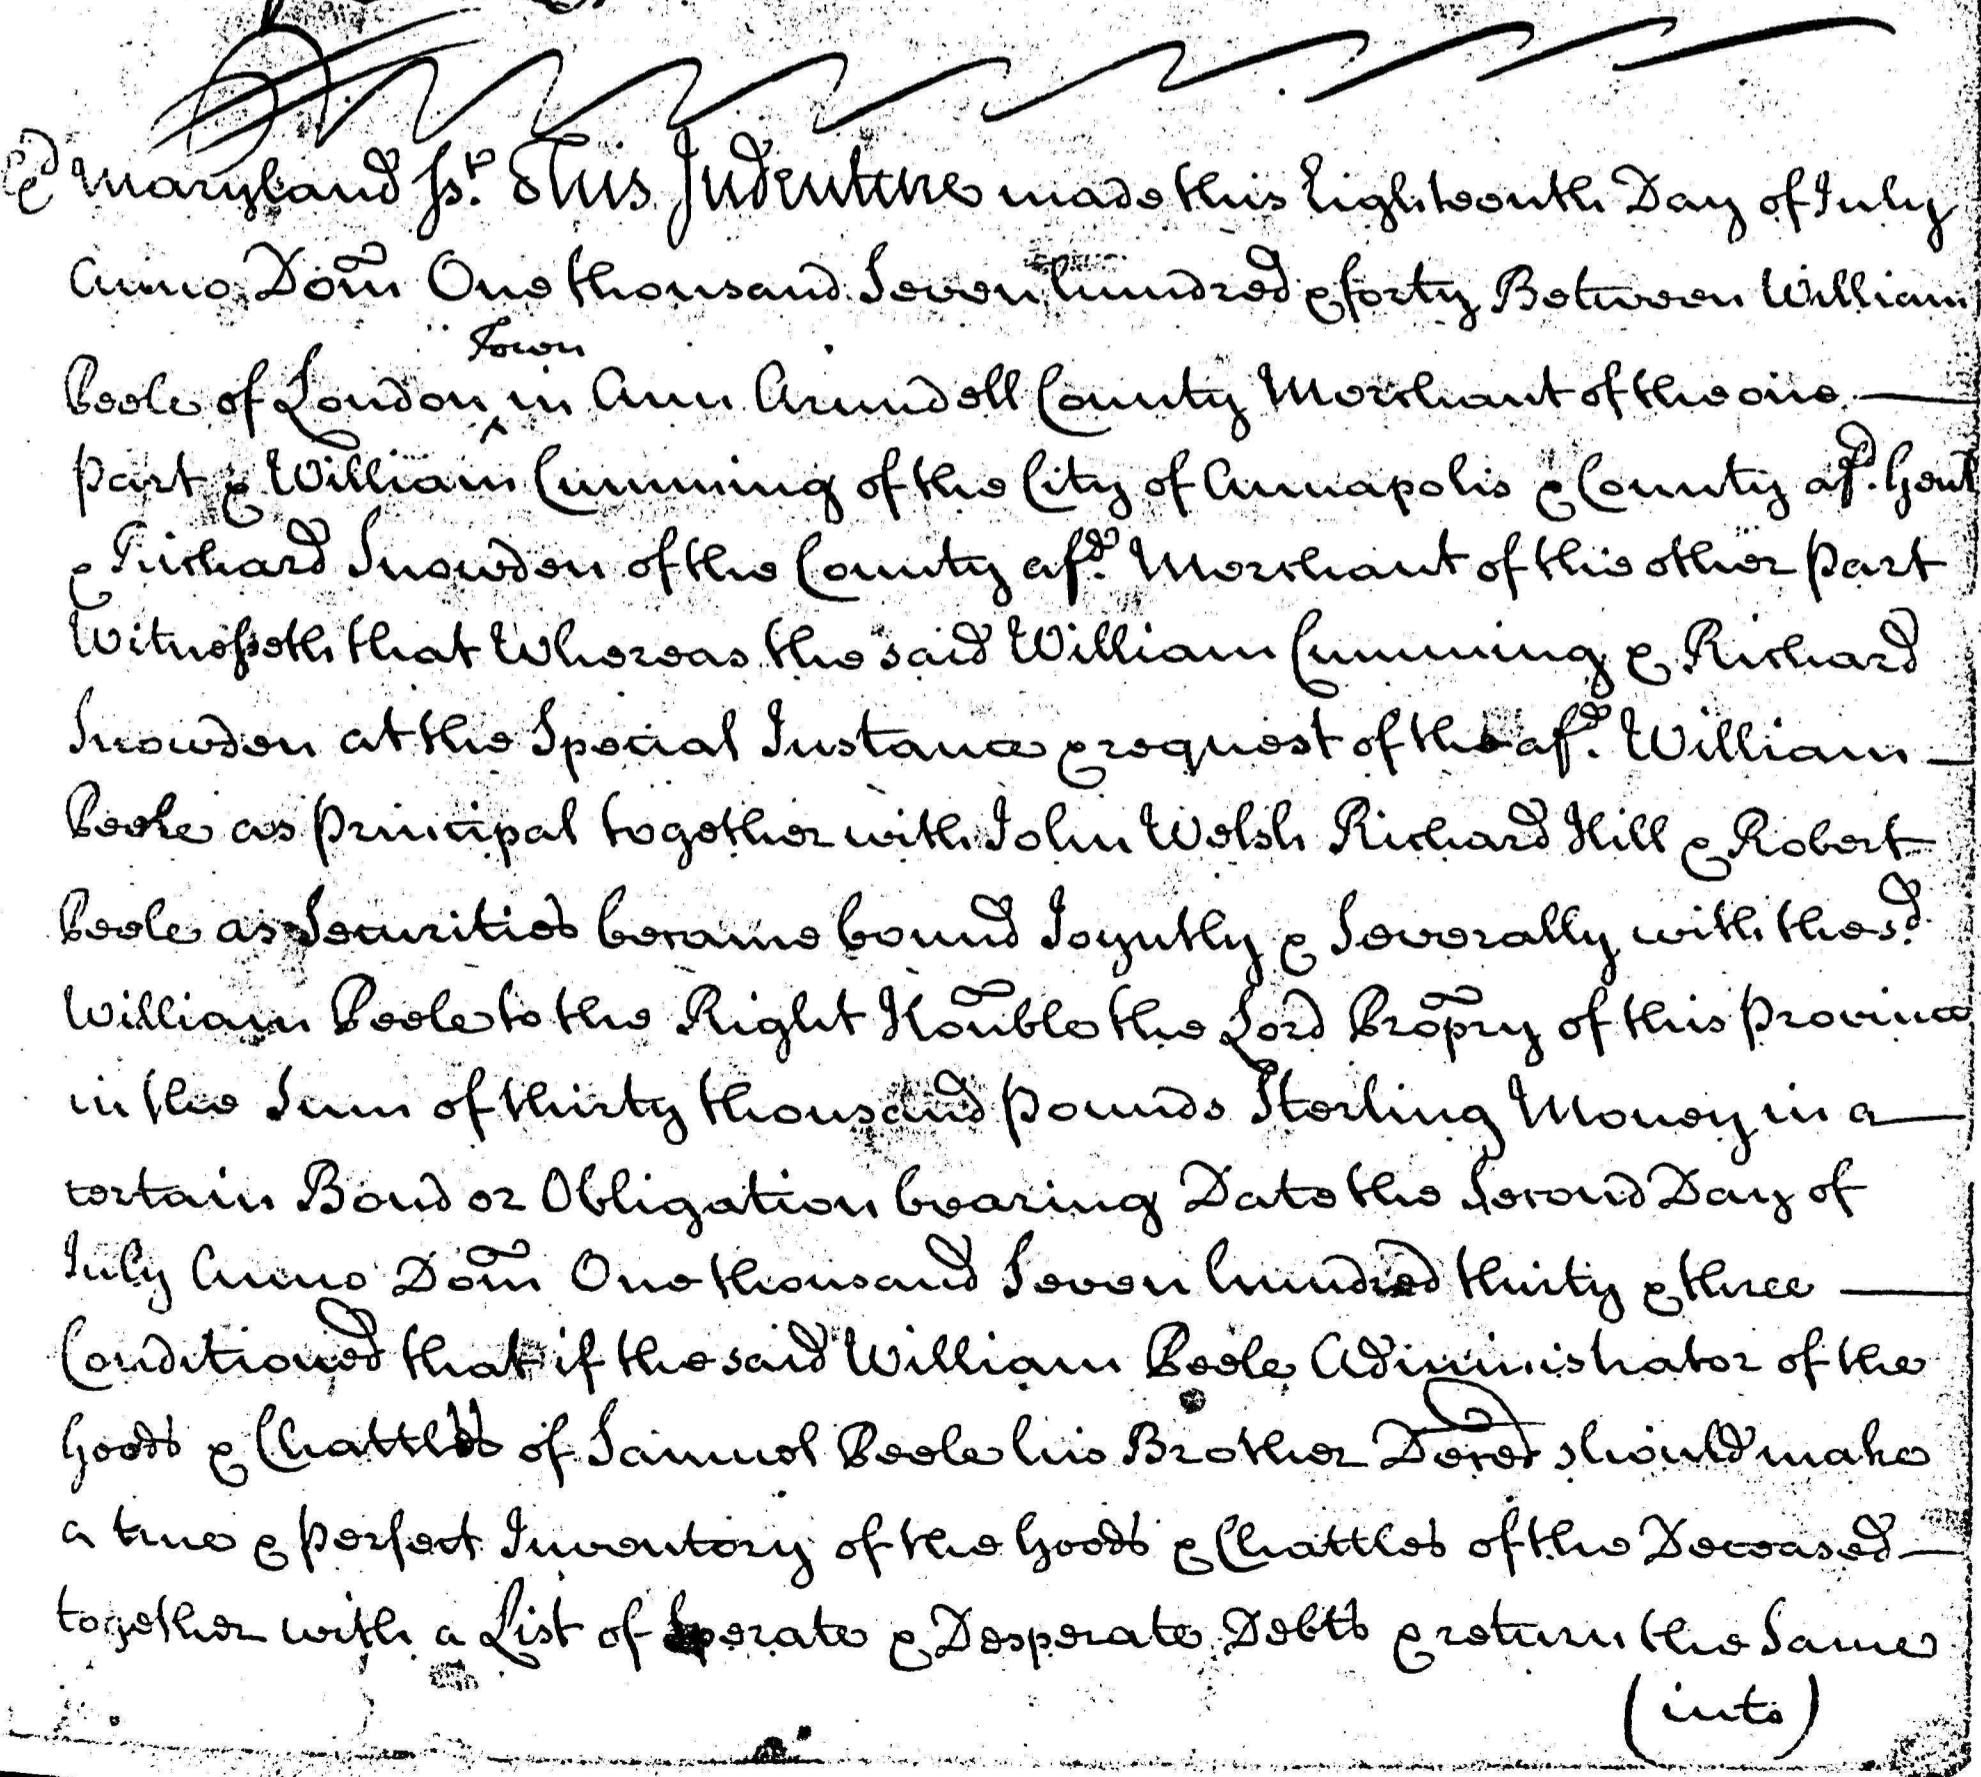 Maryland ss. This Indenture made this Eighteenth Day of July
Anno Dom One thousand Seven hundred & forty Between William
Peele of London Town in Ann Arundell County Merchant of the one
part & William Cumming of the City of Annapolis & County afd. Gent
& Richard Snowden of the County afd. Merchant of the other part
Witnesseth that Whereas the said William Cumming & Richard
Snowden at the Special Instance & request of the afd. William
Peele as principal together with John Welsh Richard Hill & Robert
Peele as Securities became bound Joyntly & Severally with the sd.
William Peele to the Right Honble the Lord Propry of this Province
in the Sum of thirty thousand pounds Sterling Money in a
certain Bond or Obligation bearing Date the Second Day of
July Anno Dom One thousand Seven hundred thirty & three
Conditioned that if the said William Peele Administrator of the
Goods & Chattles of Samuel Peele his Brother Deced should make
a true & perfect Inventory of the Goods & Chattles of the Deceased
together with a List of Sperate & Desperate Debts & return the Same
(into)